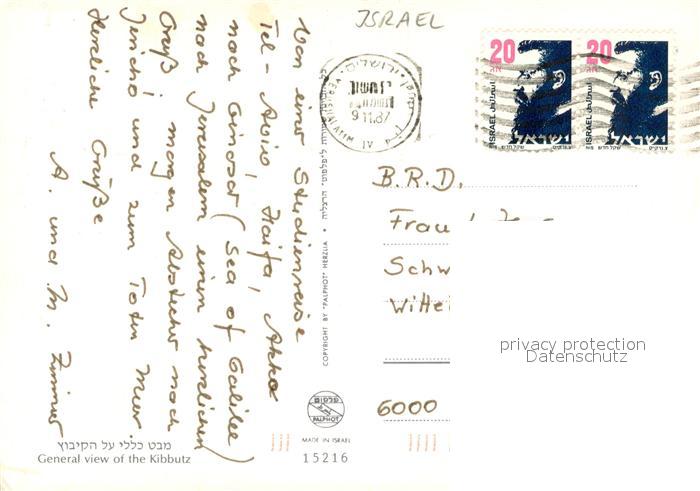 ISRAEL
Von einer Studienreise
Tel-Aviv, Haifa, Akko
nach Ginosar (Sea of Galilee)
nach Jerusalem einen herzlichen
Gruß, morgen Abstecher nach
Jericho und zum Toten Meer.
Herzliche Grüße
A. und M. Zimmer
מבט כללי על הקיבוץ
General view of the Kibbutz
COPYRIGHT BY "PALPHOT" HERZLIA
פלפוט
PALPHOT
MADE IN ISRAEL
15216
ירושלים
JERUSALEM IV
20 אג
ISRAEL
ישראל
שקל חדש
NIS
20 אג
ISRAEL
ישראל
שקל חדש
NIS
B.R.D.
Frau
Schw
Witte
6000
privacy protection
Datenschutz